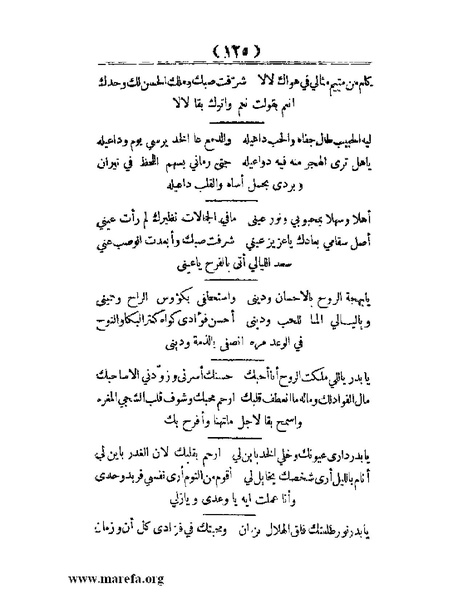 (١٢٥)
كام من متيم مثالي في هواك لالا شرفت صبك وملك الحسن لك وحدك
انعم بقولت نعم واتيك بقا لالا
ليه الحبيب طال جفاه والحب داهيله والدمع عا الخد يرسي يوم وداعيله
ياهل ترى الهجر منه فيه دواعيله جتى رماني بسهم اللحظ في نيران
و بردى بحمل أساه والقلب داعيله
أهلا وسهلا بمحبوبي ونور عيني مافي الجمالات نظيرك لم رأت عيني
أصل سقامي بعادك ياعزيز عيني شرفت صبك وأبعدت الوصب عني
سعد الليالي أتى بالفرح ياعيني
يابهجة الروح بالاحسان وديني واستعطفى بكؤوس الراح وحييني
وياليالي الملا للحب وديني أحسن فؤادى كواه كتر البكا والنوح
في الوعد مره انصفى بالذمة وديني
يابدر ياللي ملكت الروح أنا أحبك حسنك أسرنى وزودنى الاسا حبك
مال الفؤاد لك وماله ما انعطف قلبك ارحم محبك وشوف قلب الشجي المغره
واسمح بقا لاجل ماتهنا وأفرح بك
يابدر دارى عيونك وخلي الخد باين لي ارحم بقلبك لان الغدر باين لي
أنام بالليل أرى شخصك يخايل لي أقوم من النوم أرى نفسي فريد وحدى
وأنا عملت ايه يا وعدى ويازلي
يابدر نور طلعتك فاق الهلال وزان ومحبتك في فؤادى كل آن وزمان
www.marefa.org